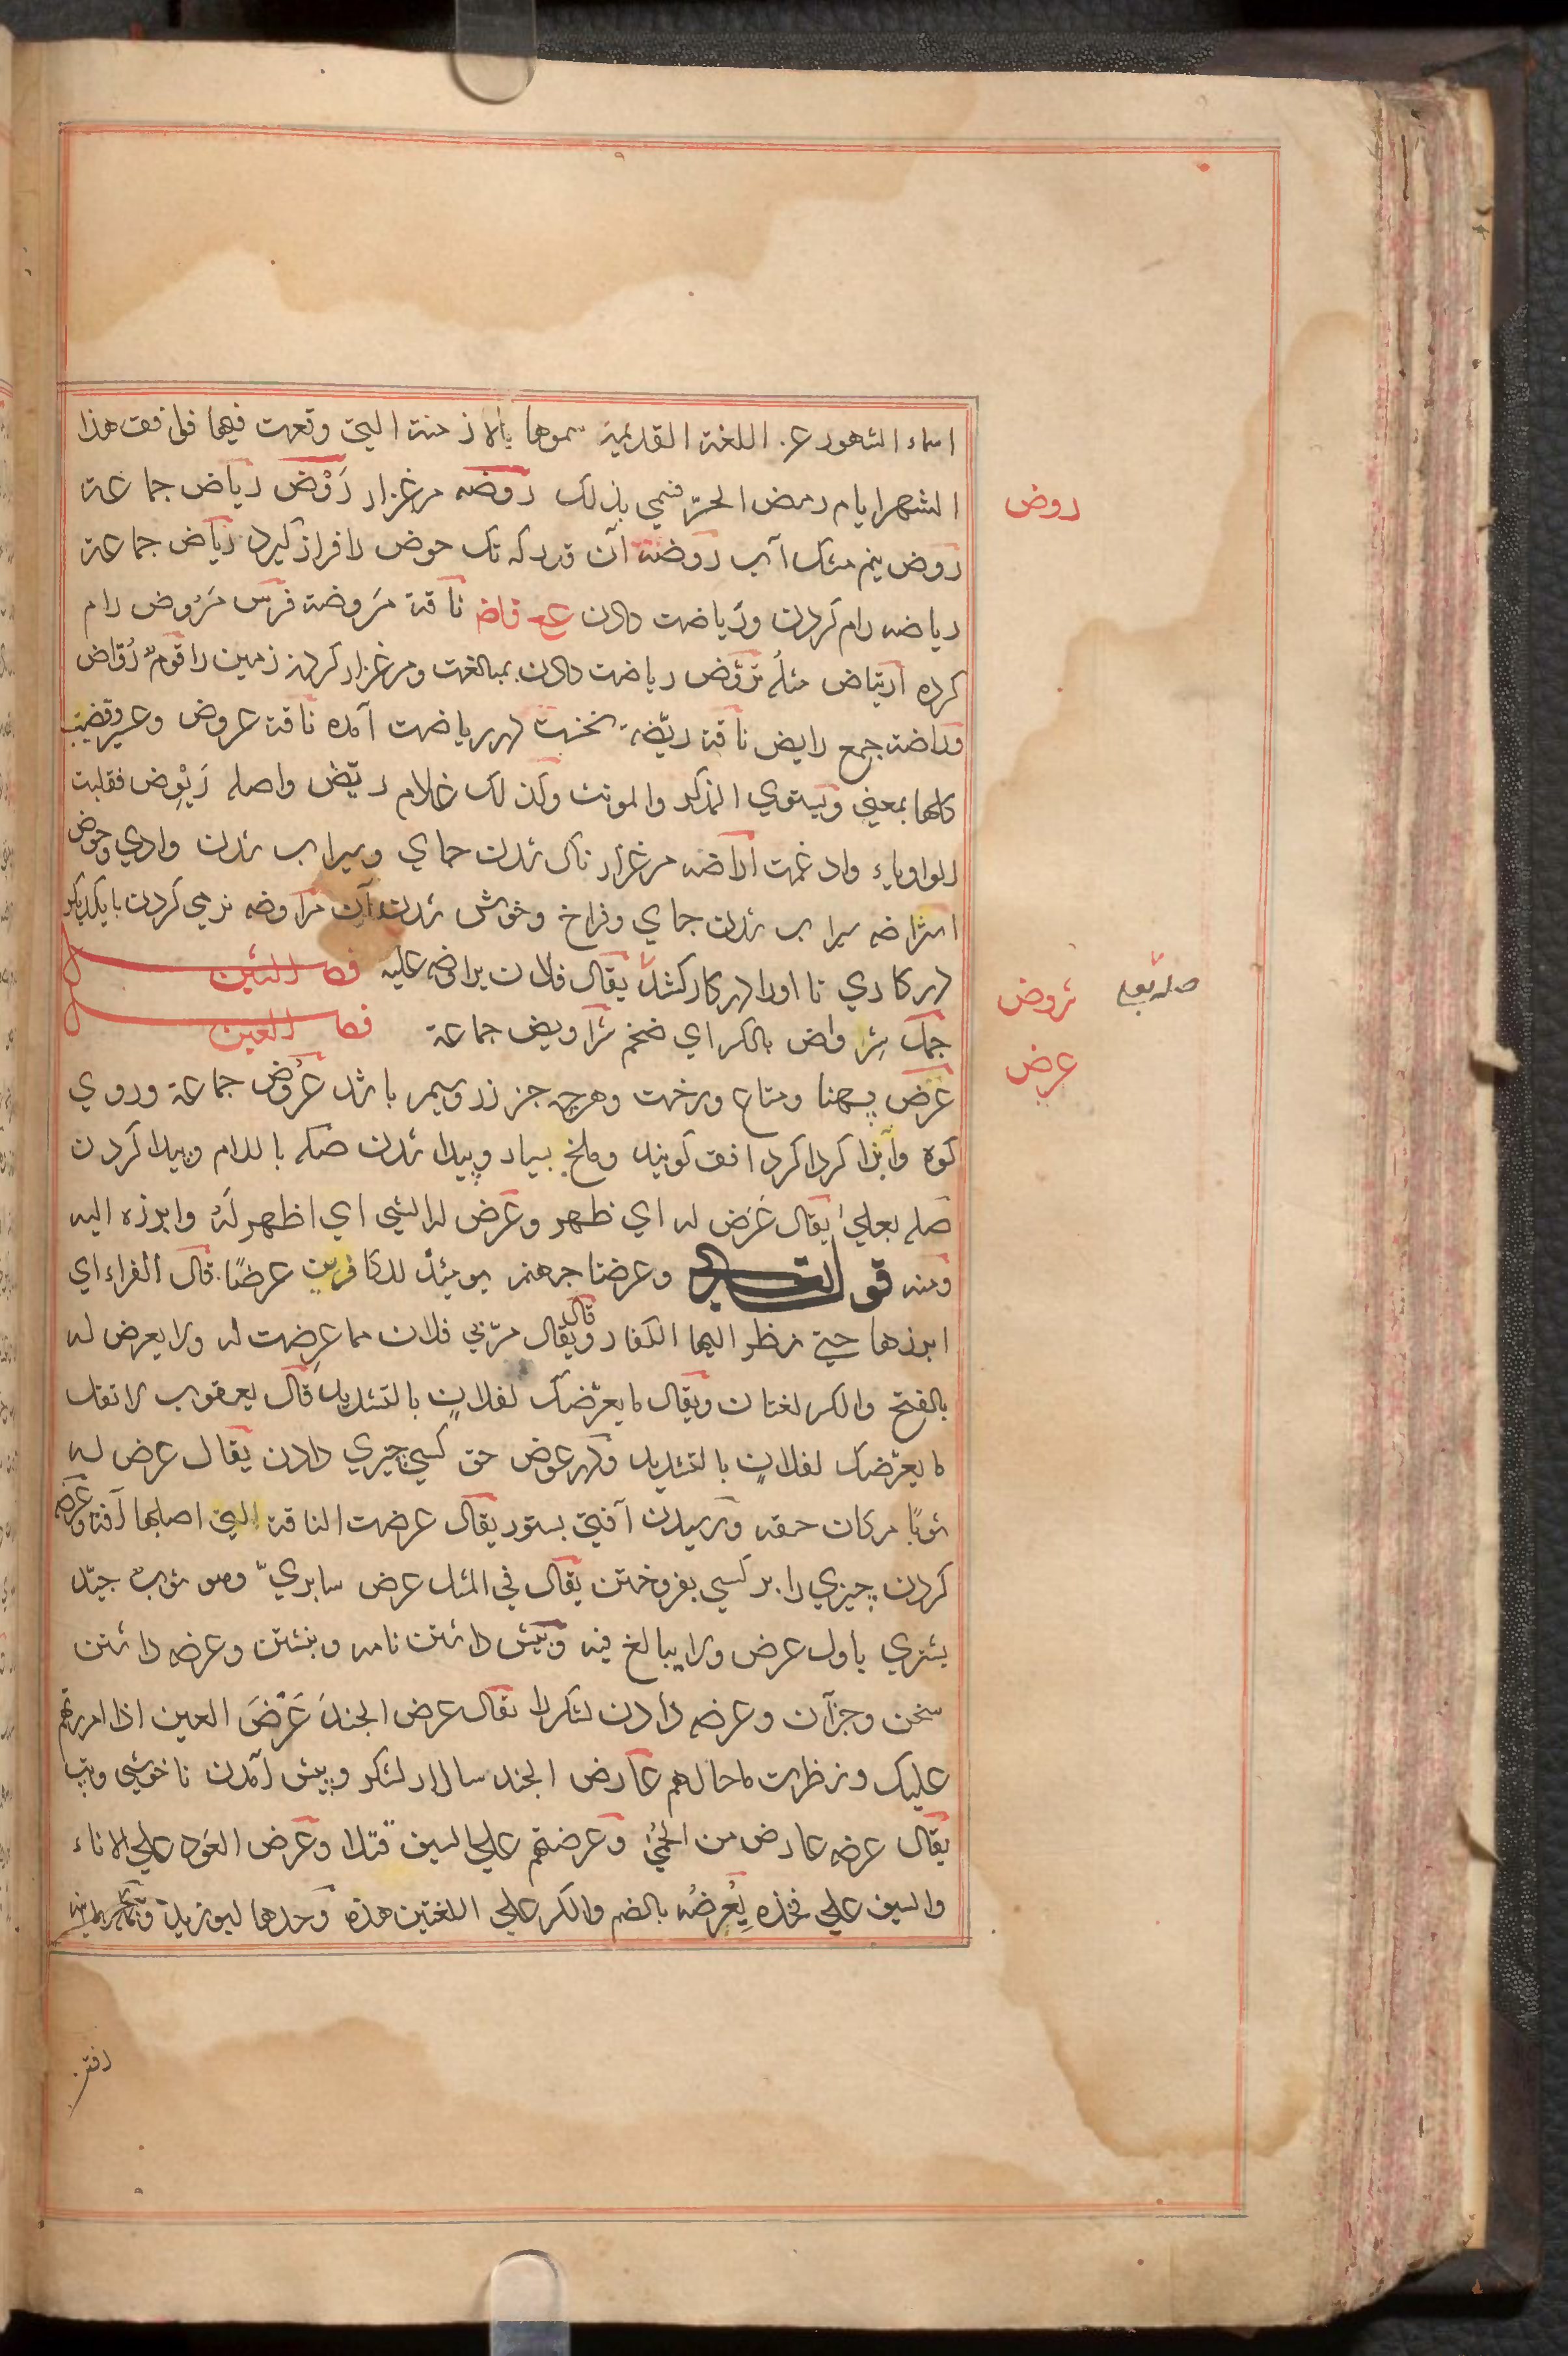 اسماء الشهور عن اللغة القديمة سموها بالازمنة التي وقعت فيها فوافق هذا
الشهر ايام رمض الحرّ فسمي بذلك روضه مرغزار رَوْض رياض جماعة
روض نيم مشك آب روضة آن قدر كه تك حوض را فراز گيرد رياض جماعة
رياضه رام كردن ورياضت دادن ناقة مَروضة فرس مَرُوض رام
كرده ارتياض مثلُه تروّض رياضت دادن بمبالغت ومرغزار كردن زمين را قومٌ رُوّاض
وراضة جمع رايض ناقة ريّضة نخست در رياضت آمده ناقة عروض وعسير وقضيب
كلها بمعني ويستوي المذكر والمونث وكذلك غلام ريّض واصله رَيْوِض فقلبت
الواو ياء وادغمت اراضه مرغزار ناك شدن جماي وسيراب شدن وادي وحوض
استراضه سيراب شدن جماي وفراخ وخوش شدن آن مراوضه نرمي كردن با يكديكر
در كاري تا او را در كار كشد يقال فلان يراوض عليه فصل الشين
جمل شِرواض بالكسر اي ضخم شراويض جماعة فصل العين
عرض پهنا ومتاع ورخت وهرچه جز زر وسيم باشد عُرُوض جماعة وروي
كوه وآنرا كرداكرد افق كويند وملخ بسيار وپيدا شدن صله باللام وپيدا كردن
صله بعلي يقال عَرَض له اي ظهر وعرض له الشي اي اظهر لَه وابرزه اليه
ومنه قوله تعالى وعرضنا جهنم يومئذ للكافرين عرضًا قال الفراء اي
ابرزها حتى نظر اليها الكفار قال ويقال مرّ بي فلان مما عرضت له ولا يعرض له
بالفتح والكسر لغتان ويقال ما يعرّضك لفلان بالتشديد قال يعقوب لا تقل
ما يعرّضك لفلان بالتشديد ودر عوض حق كسي چيزي دادن يقال عرض له
ثوبًا مكان حقه ورسيدن آفتي بستور يقال عرضت الناقة التي اصابها آفة وعرضه
كردن چيزي را بر كسي بفروختن يقال في المثل عرض سابريّ وهو ثوب جيّد
يشتري باول عرض ولا يبالغ فيه وپيش داشتن نامه ونبشتن وعرضه داشتن
سخن وجز آن وعرضه دادن لشكر را يقال عرض الجندَ عَرْضَ العين اذا امررتهم
عليك ونظرت ما حالهم عارض الجند سالار لشكر وپيش آمدن ناخوشي وتب
يقال عرضه عارض من الحمّى وعرضتهم علي السيف قتلا وعرض العود علي الاناء
والسيف علي فخذه يعرضُه بالضم والكسر علي اللغتين هذه وحدها
روض
شروض
صله بعلى
عرض
دفتر